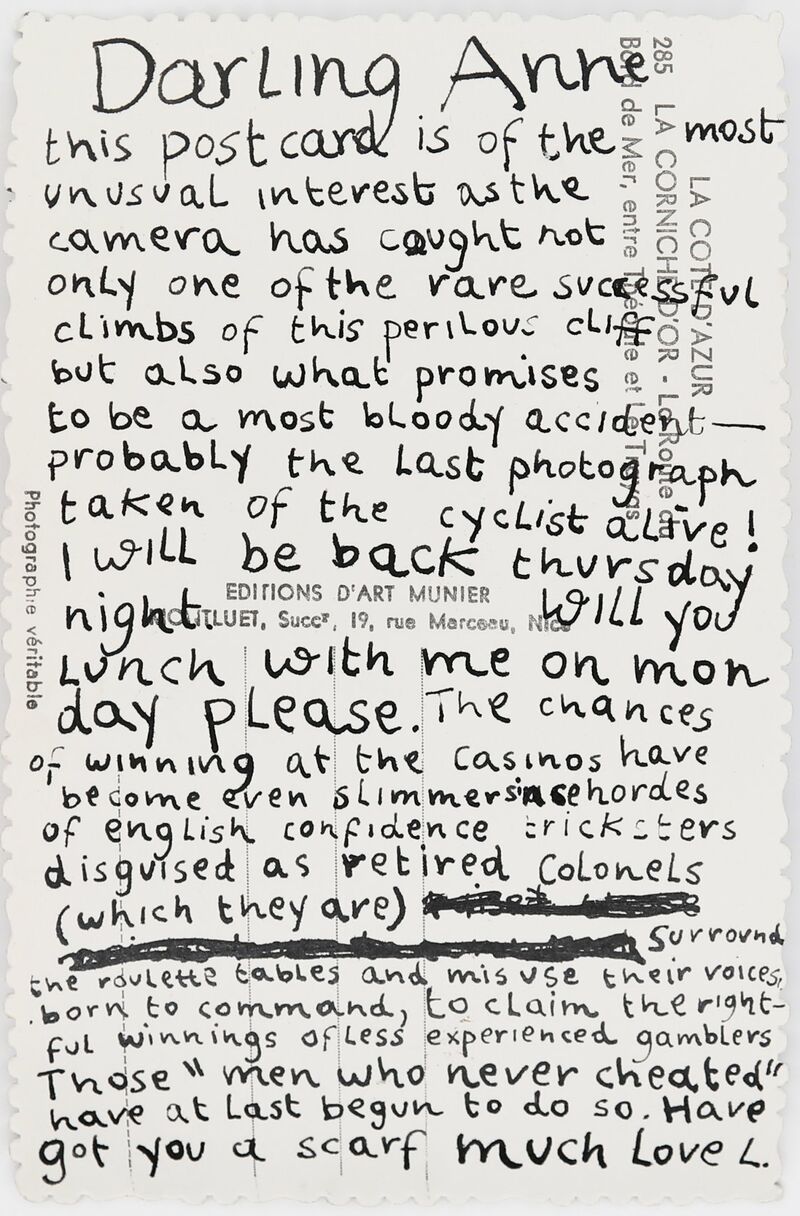 Darling Anne
this postcard is of the most
unusual interest as the
camera has caught not
only one of the rare successful
climbs of this perilous cliff
but also what promises
to be a most bloody accident —
probably the last photograph
taken of the cyclist alive!
I will be back thursday
night. Will you
Lunch with me on mon
day please. The chances
of winning at the casinos have
become even slimmer since hordes
of english confidence tricksters
disguised as retired Colonels
(which they are)
Surround
the roulette tables and misuse their voices,
born to command, to claim the right-
ful winnings of less experienced gamblers
Those "men who never cheated"
have at last begun to do so. Have
got you a scarf much Love L.
LA COTE D'AZUR
285 LA CORNICHE D'OR - La Route du
Bord de Mer, entre Théoule et Le Trayas
EDITIONS D'ART MUNIER
MOUTLUET, Succr, 19, rue Marceau, Nice
Photographie véritable